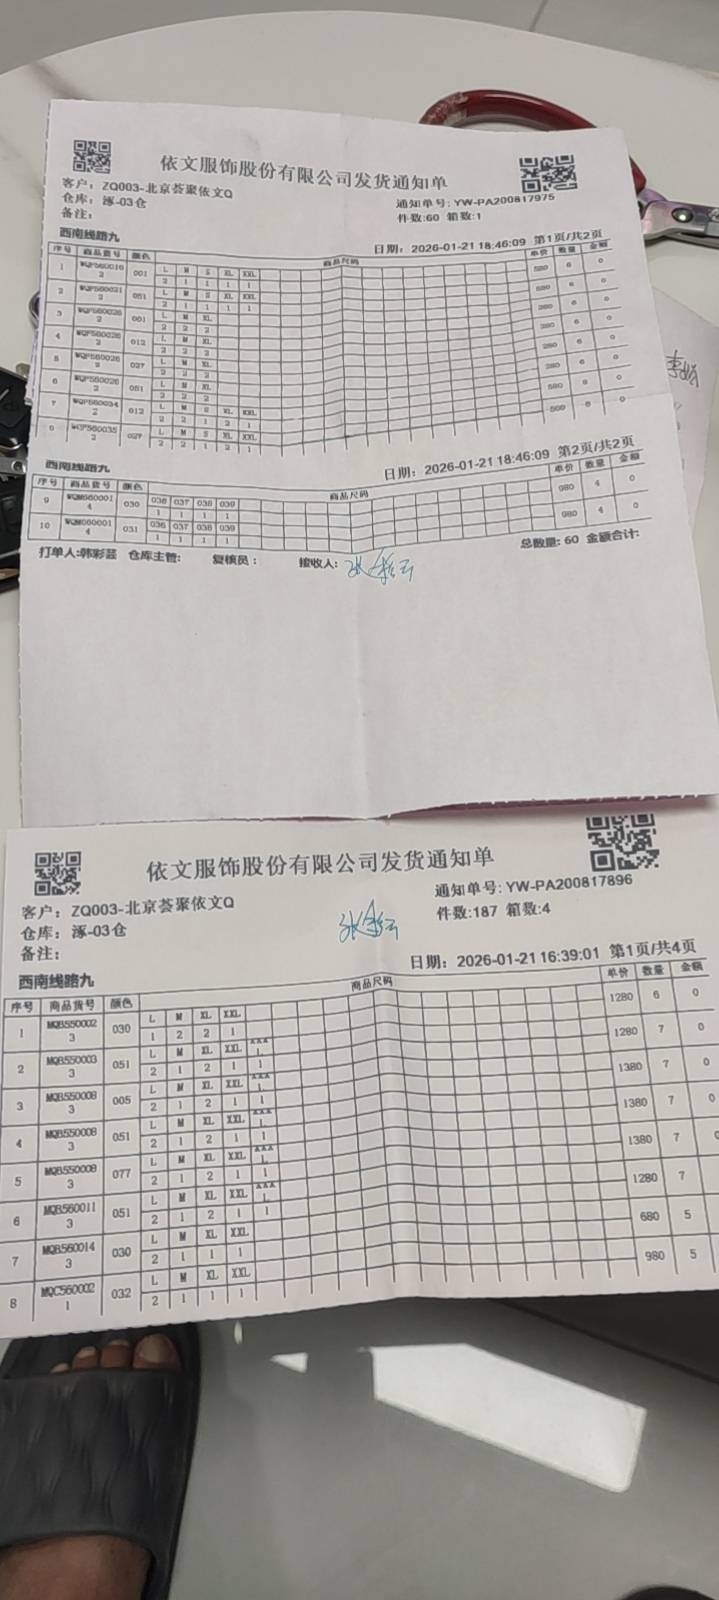 依文服饰股份有限公司发货通知单
客户: ZQ003-北京荟聚依文Q
通知单号: YW-PA200817975
仓库: 涿-03仓
件数:60 箱数:1
备注:
西南线路九
日期: 2026-01-21 18:46:09 第1页/共2页
序号 商品货号 颜色 商品尺码 单价 数量 金额
1 001 L M S XL XXL 6 0
2 1 1 1 1
2 051 L M S XL XXL 6 0
2 1 1 1 1
3 001 L M XL 6 0
2 2 2
4 012 L M XL 6 0
2 2 2
5 027 L M XL 6 0
2 2 2
6 051 L M XL 6 0
2 2 2
7 012 L M S XL XXL
027 L M S XL XXL
2 2 1 2 1
西南线路九
日期: 2026-01-21 18:46:09 第2页/共2页
序号 商品货号 颜色 商品尺码 单价 数量 金额
9 WQM560001 4 030 036 037 038 039 980 4 0
1 1 1 1
10 WQM560001 4 031 036 037 038 039 980 4 0
1 1 1 1
总数量: 60 金额合计:
打单人:韩彩芸 仓库主管: 复核员: 接收人:
依文服饰股份有限公司发货通知单
通知单号: YW-PA200817896
客户: ZQ003-北京荟聚依文Q
件数:187 箱数:4
仓库: 涿-03仓
备注:
日期: 2026-01-21 16:39:01 第1页/共4页
西南线路九
序号 商品货号 颜色 商品尺码 单价 数量 金额
1 MQB550002 3 030 L M XL XXL 1280 6 0
1 2 2 1
2 MQB550003 3 051 L M XL XXL XXX L 1280 7 0
2 1 2 1 1
3 MQB550008 3 005 L M XL XXL XXX L 1380 7 0
2 1 2 1 1
4 MQB550008 3 051 L M XL XXL XXX L 1380 7 0
2 1 2 1 1
5 MQB550008 3 077 L M XL XXL XXX L 1380 7 0
2 1 2 1 1
6 MQB560011 3 051 L M XL XXL XXX L 1280 7
2 1 2 1 1
7 MQB560014 3 030 L M XL XXL 680 5
2 1 1 1
8 MQC560002 1 032 L M XL XXL 980 5
2 1 1 1